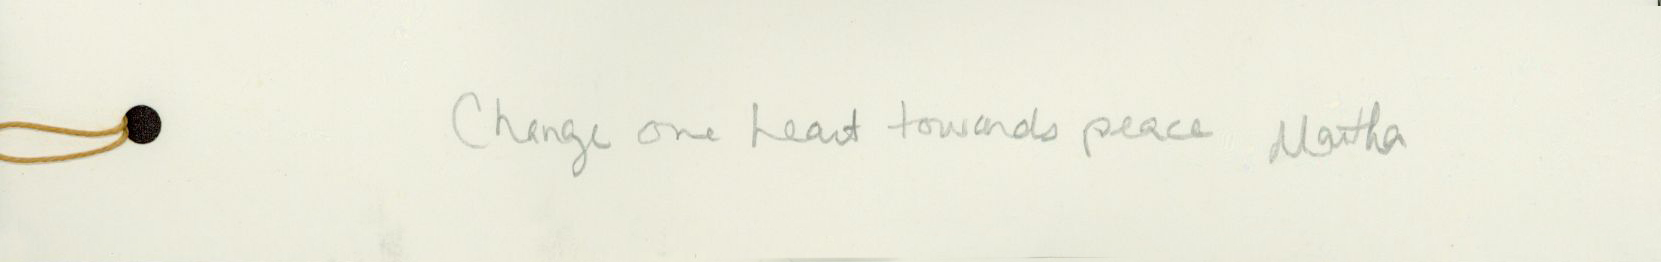 Change one heart towards peace Martha